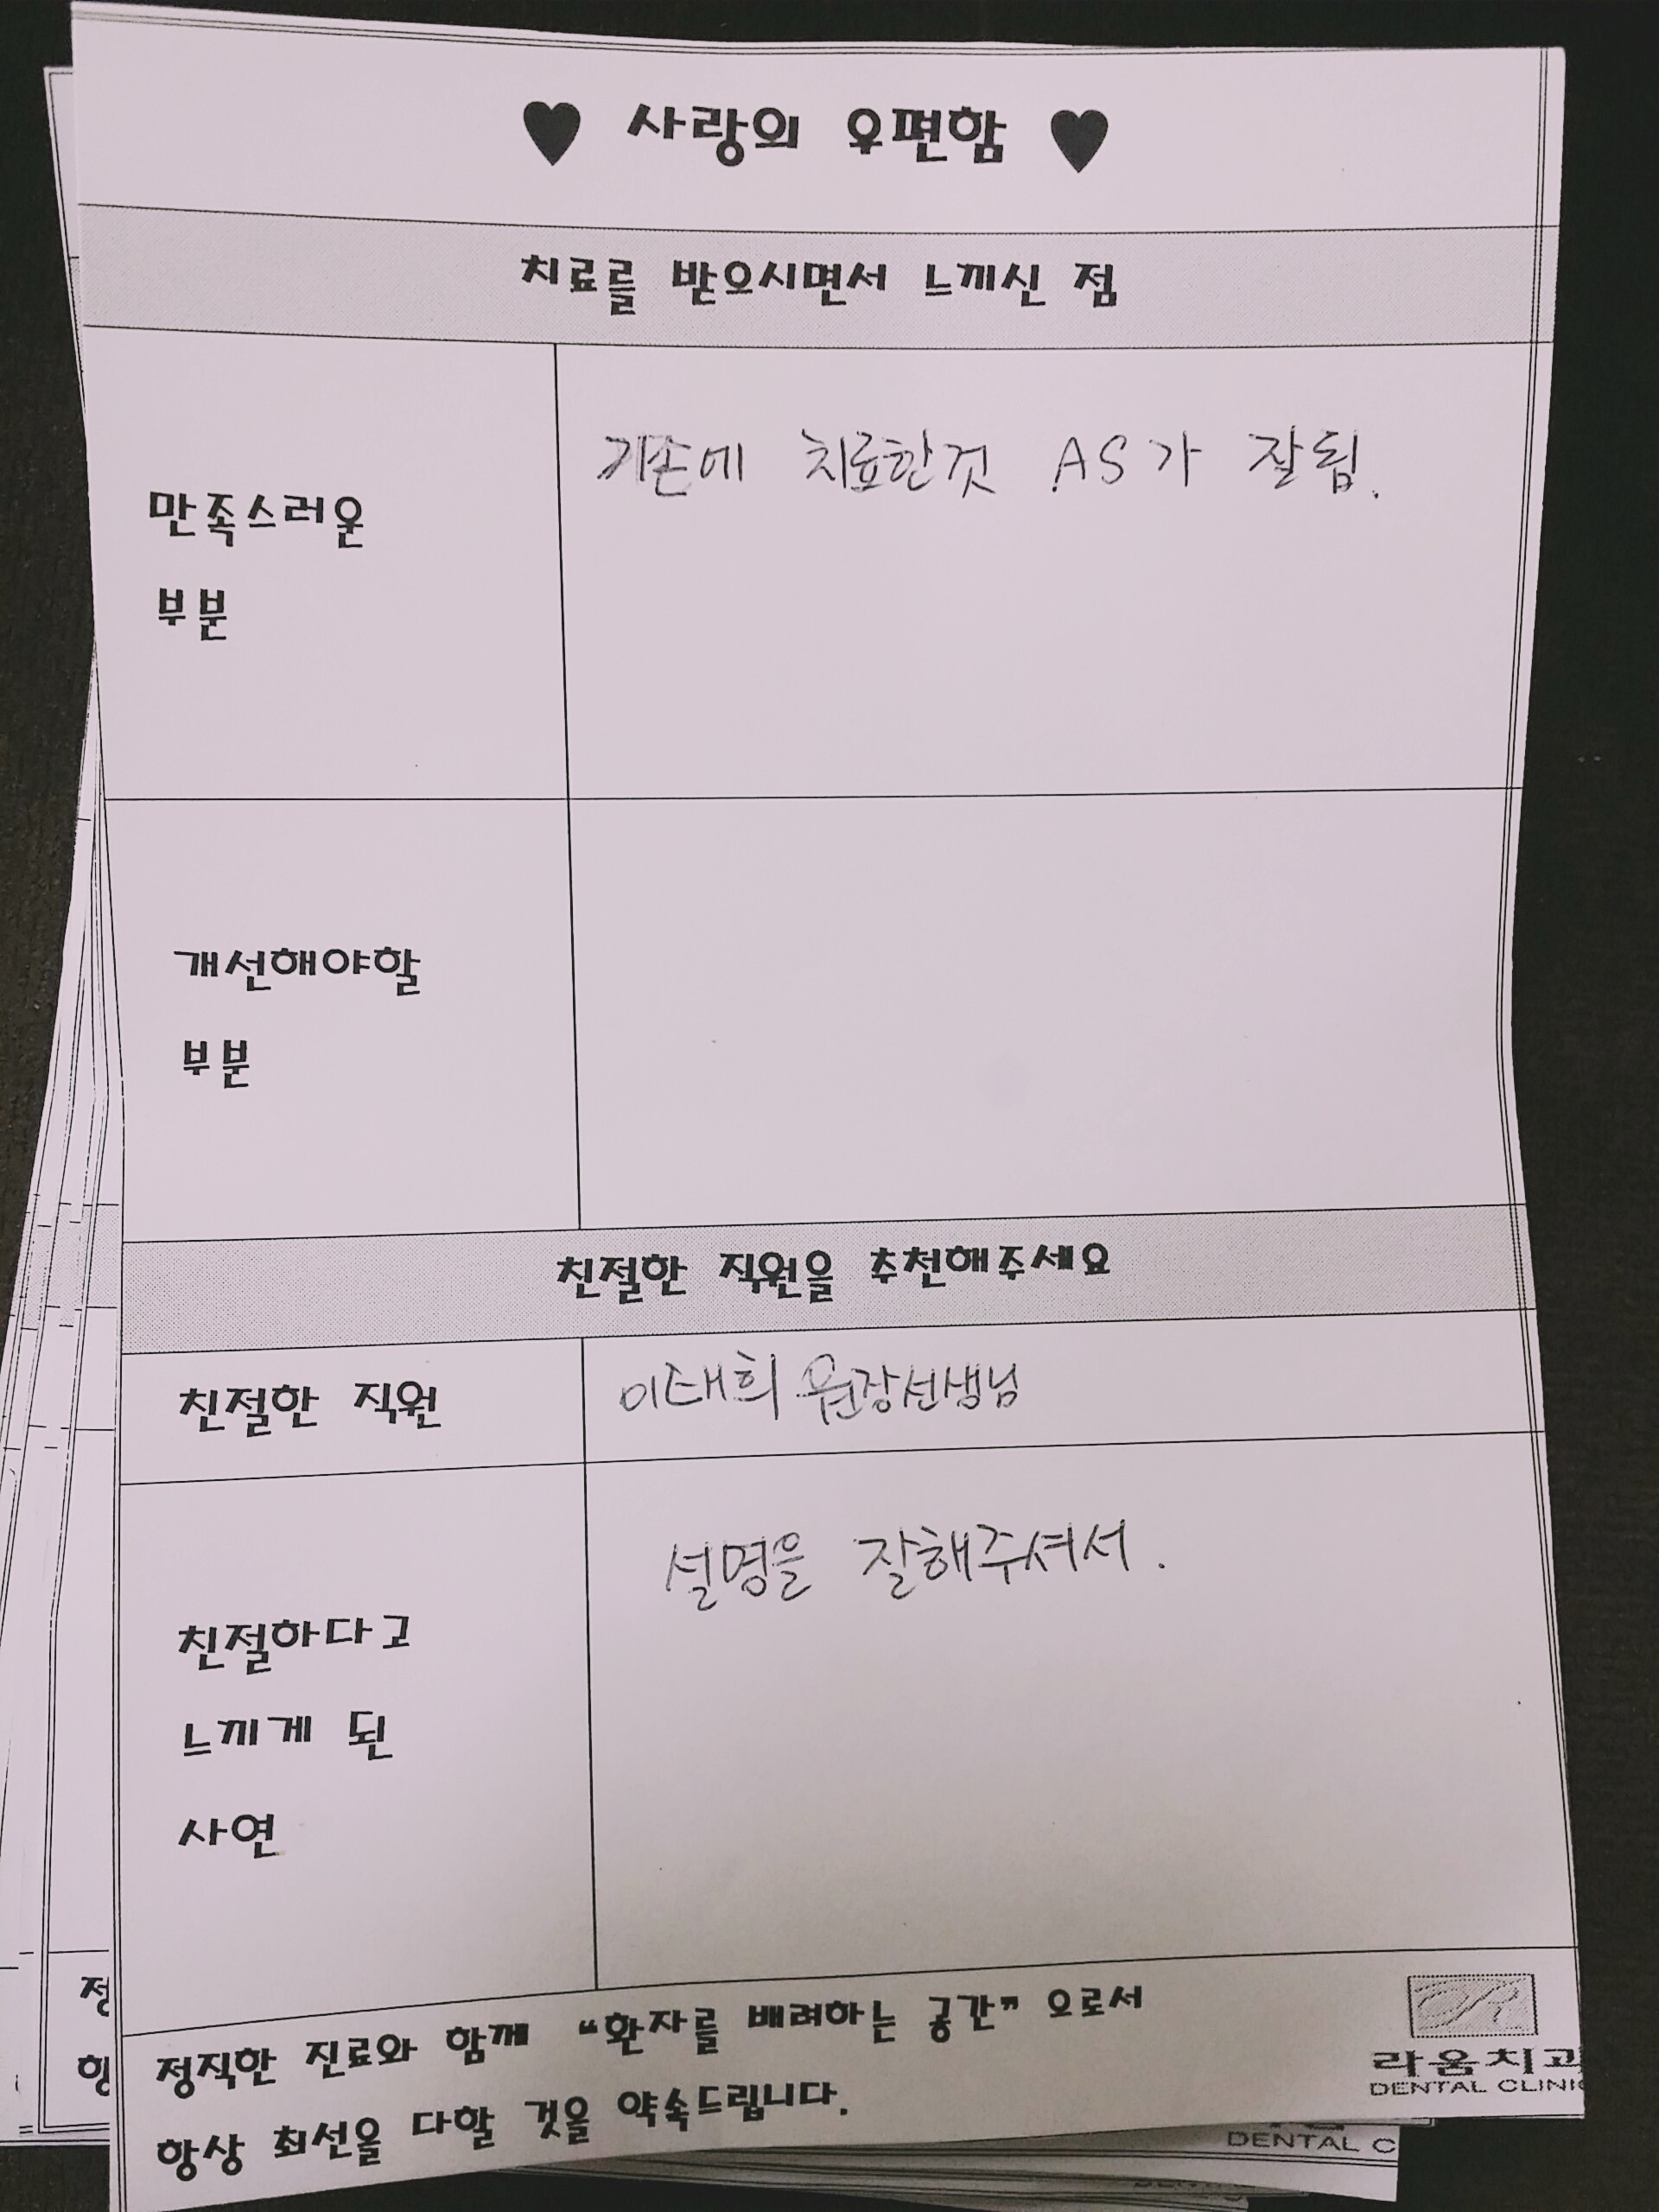 ♥ 사랑의 우편함 ♥
치료를 받으시면서 느끼신 점
만족스러운
부분
기존에 치료한것 AS가 잘됨.
개선해야할
부분
친절한 직원을 추천해주세요
친절한 직원
이태희 원장선생님
친절하다고
느끼게 된
사연
설명을 잘해주셔서.
정직한 진료와 함께 “환자를 배려하는 공간” 으로서
항상 최선을 다할 것을 약속드립니다.
라움치과
DENTAL CLINIC
정
항
DENTAL C